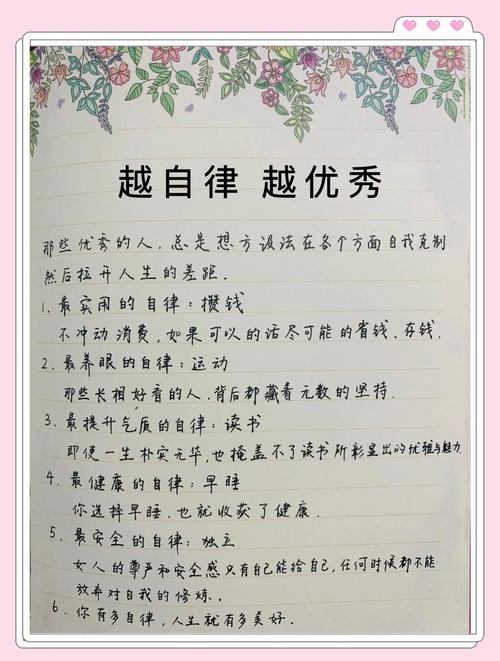 越自律 越优秀
那些优秀的人,总是想方设法在各个方面自我克制
然后拉开人生的差距.
1、最实用的自律:攒钱
不冲动消费,如果可以的话尽可能的省钱、存钱.
2、最养眼的自律:运动
那些长相好看的人,背后都藏着无数的坚持.
3、最提升气质的自律:读书
即使一生朴实无华,也掩盖不了读书所彰显出的优雅与魅力
4、最健康的自律:早睡
你选择早睡,也就收获了健康.
5、最安全的自律:独立
女人的尊严和安全感只有自己能给自己,任何时候都不能
放弃对自我的修炼.
6、你有多自律,人生就有多美好.